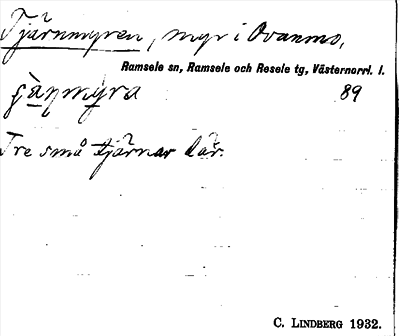 Tjärnmyren, myr i Ovanmo,
Ramsele sn, Ramsele och Resele tg, Västernorrl. l.
89
Tre små tjärnar där.
C. LINDBERG 1932.